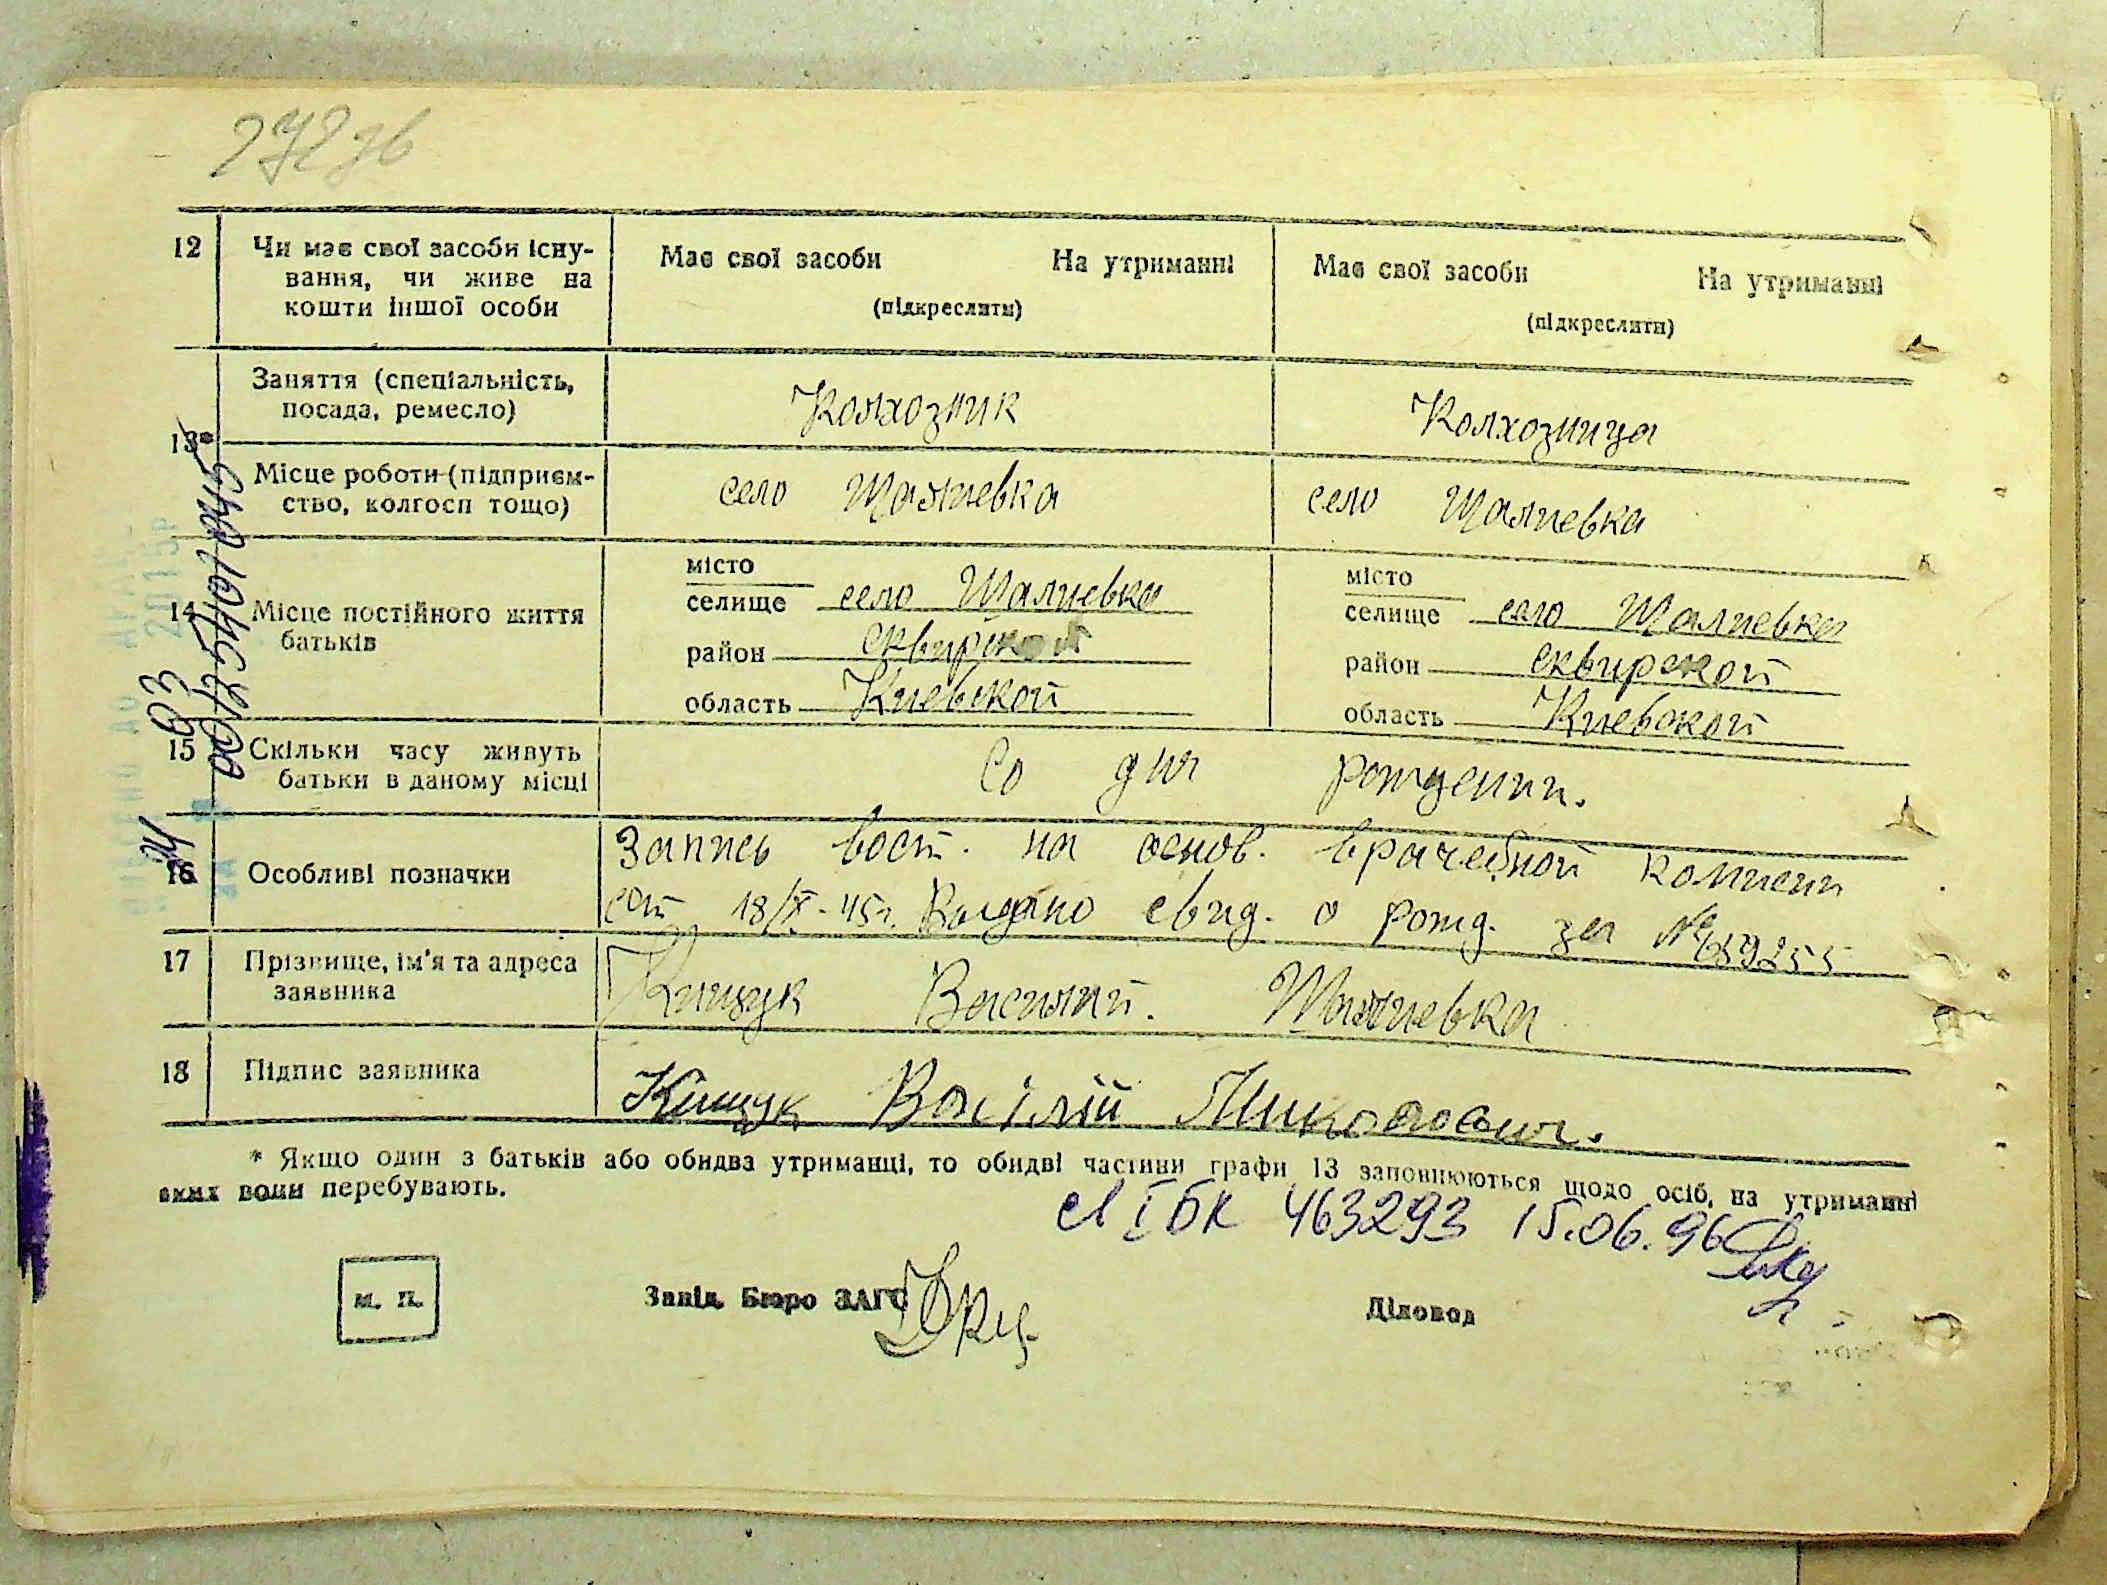 272зв
12 Чи має свої засоби існу-
вання, чи живе на
кошти іншої особи
Має свої засоби На утриманні
(підкреслити)
Має свої засоби На утриманні
(підкреслити)
13*
Заняття (спеціальність,
посада, ремесло)
Колхозник
Колхозница
Місце роботи (підприєм-
ство, колгосп тощо)
село Шалиевка
село Шалиевка
14 Місце постійного життя
батьків
місто
селище село Шалиевка
район Сквирской
область Киевской
місто
селище село Шалиевка
район Сквирской
область Киевской
15 Скільки часу живуть
батьки в даному місці
Со дня рождения.
16 Особливі позначки
Запись вост. на основ. врачебной комисии
от 18/X-45г. Выдано свид. о рожд. за № 659255
17 Прізвище, ім'я та адреса
заявника
Кищук Василий. Шалиевка
18 Підпис заявника
Кищук Васілій Николаович.
* Якщо один з батьків або обидва утриманці, то обидві частини графи 13 заповнюються щодо осіб, на утриманні
яких вони перебувають.
І БК 463293 15.06.96
М. П.
Завід. Бюро ЗАГС
Діловод